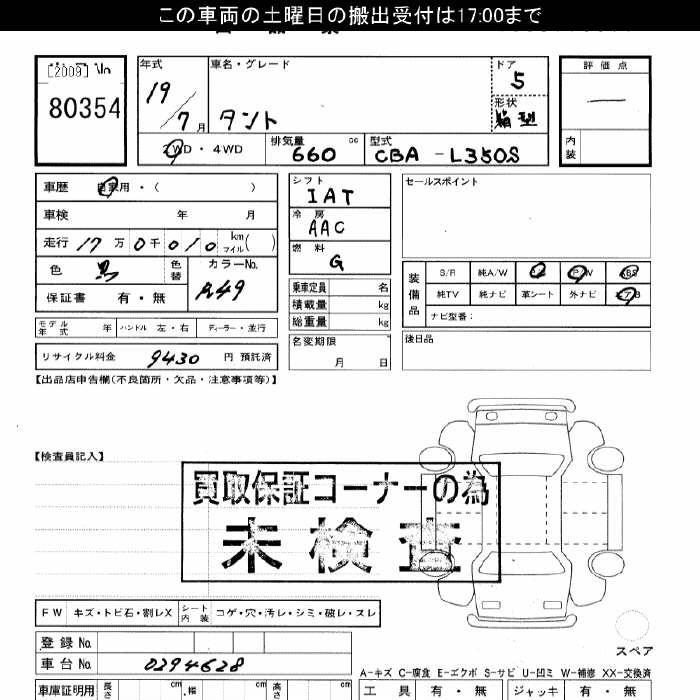 この車両の土曜日の搬出受付は17:00まで
[2009] No
80354
年式
19/7月
車名・グレード
タント
ドア
5
形状
箱型
評価点
—
内装
2WD・4WD
排気量
660 cc
型式
CBA-L350S
車歴 自家用・( )
車検 年 月
走行 17万0千010 km マイル( )
色 黒 色替
カラーNo.
保証書 有・無
シフト
IAT
冷房
AAC
燃料
G
乗車定員 名
積載量 kg
総重量 kg
名変期限
月 日
セールスポイント
装備品
S/R 純A/W P/S P/W ABS
純TV 純ナビ 革シート 外ナビ エアB
ナビ型番:
後日品
モデル年式 年 ハンドル 左・右 ディーラー・並行
リサイクル料金 9430 円 預託済
【出品店申告欄(不良箇所・欠品・注意事項等)】
【検査員記入】
買取保証コーナーの為
未検査
FW キズ・トビ石・割レX シート内装 コゲ・穴・汚レ・シミ・破レ・スレ
登録No.
車台No. 0294628
スペア
A-キズ C-腐食 E-エクボ S-サビ U-凹ミ W-補修 XX-交換済
車庫証明用 長さ cm 幅 cm 高さ cm
工具 有・無 ジャッキ 有・無